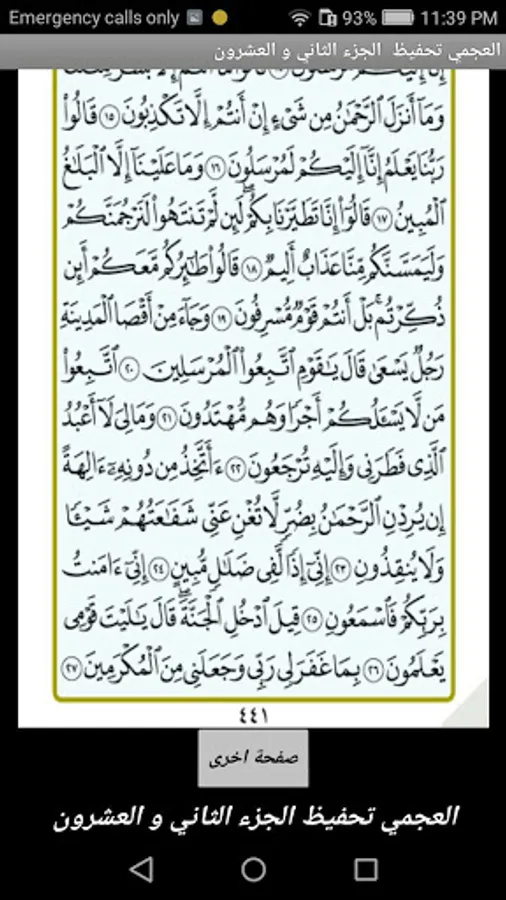 Emergency calls only 93% 11:39 PM
العجمي تحفيظ الجزء الثاني و العشرون
وَمَآ أَنزَلَ ٱلرَّحْمَٰنُ مِن شَىْءٍ إِنْ أَنتُمْ إِلَّا تَكْذِبُونَ ١٥ قَالُوا۟
رَبُّنَا يَعْلَمُ إِنَّآ إِلَيْكُمْ لَمُرْسَلُونَ ١٦ وَمَا عَلَيْنَآ إِلَّا ٱلْبَلَٰغُ
ٱلْمُبِينُ ١٧ قَالُوٓا۟ إِنَّا تَطَيَّرْنَا بِكُمْ ۖ لَئِن لَّمْ تَنتَهُوا۟ لَنَرْجُمَنَّكُمْ
وَلَيَمَسَّنَّكُم مِّنَّا عَذَابٌ أَلِيمٌ ١٨ قَالُوا۟ طَٰٓئِرُكُم مَّعَكُمْ ۚ أَئِن
ذُكِّرْتُم ۚ بَلْ أَنتُمْ قَوْمٌ مُّسْرِفُونَ ١٩ وَجَآءَ مِنْ أَقْصَا ٱلْمَدِينَةِ
رَجُلٌ يَسْعَىٰ قَالَ يَٰقَوْمِ ٱتَّبِعُوا۟ ٱلْمُرْسَلِينَ ٢٠ ٱتَّبِعُوا۟
مَن لَّا يَسْـَٔلُكُمْ أَجْرًا وَهُم مُّهْتَدُونَ ٢١ وَمَا لِىَ لَآ أَعْبُدُ
ٱلَّذِى فَطَرَنِى وَإِلَيْهِ تُرْجَعُونَ ٢٢ ءَأَتَّخِذُ مِن دُونِهِۦٓ ءَالِهَةً
إِن يُرِدْنِ ٱلرَّحْمَٰنُ بِضُرٍّ لَّا تُغْنِ عَنِّى شَفَٰعَتُهُمْ شَيْـًٔا
وَلَا يُنقِذُونِ ٢٣ إِنِّىٓ إِذًا لَّفِى ضَلَٰلٍ مُّبِينٍ ٢٤ إِنِّىٓ ءَامَنتُ
بِرَبِّكُمْ فَٱسْمَعُونِ ٢٥ قِيلَ ٱدْخُلِ ٱلْجَنَّةَ ۖ قَالَ يَٰلَيْتَ قَوْمِى
يَعْلَمُونَ ٢٦ بِمَا غَفَرَ لِى رَبِّى وَجَعَلَنِى مِنَ ٱلْمُكْرَمِينَ ٢٧
٤٤١
صفحة اخرى
العجمي تحفيظ الجزء الثاني و العشرون